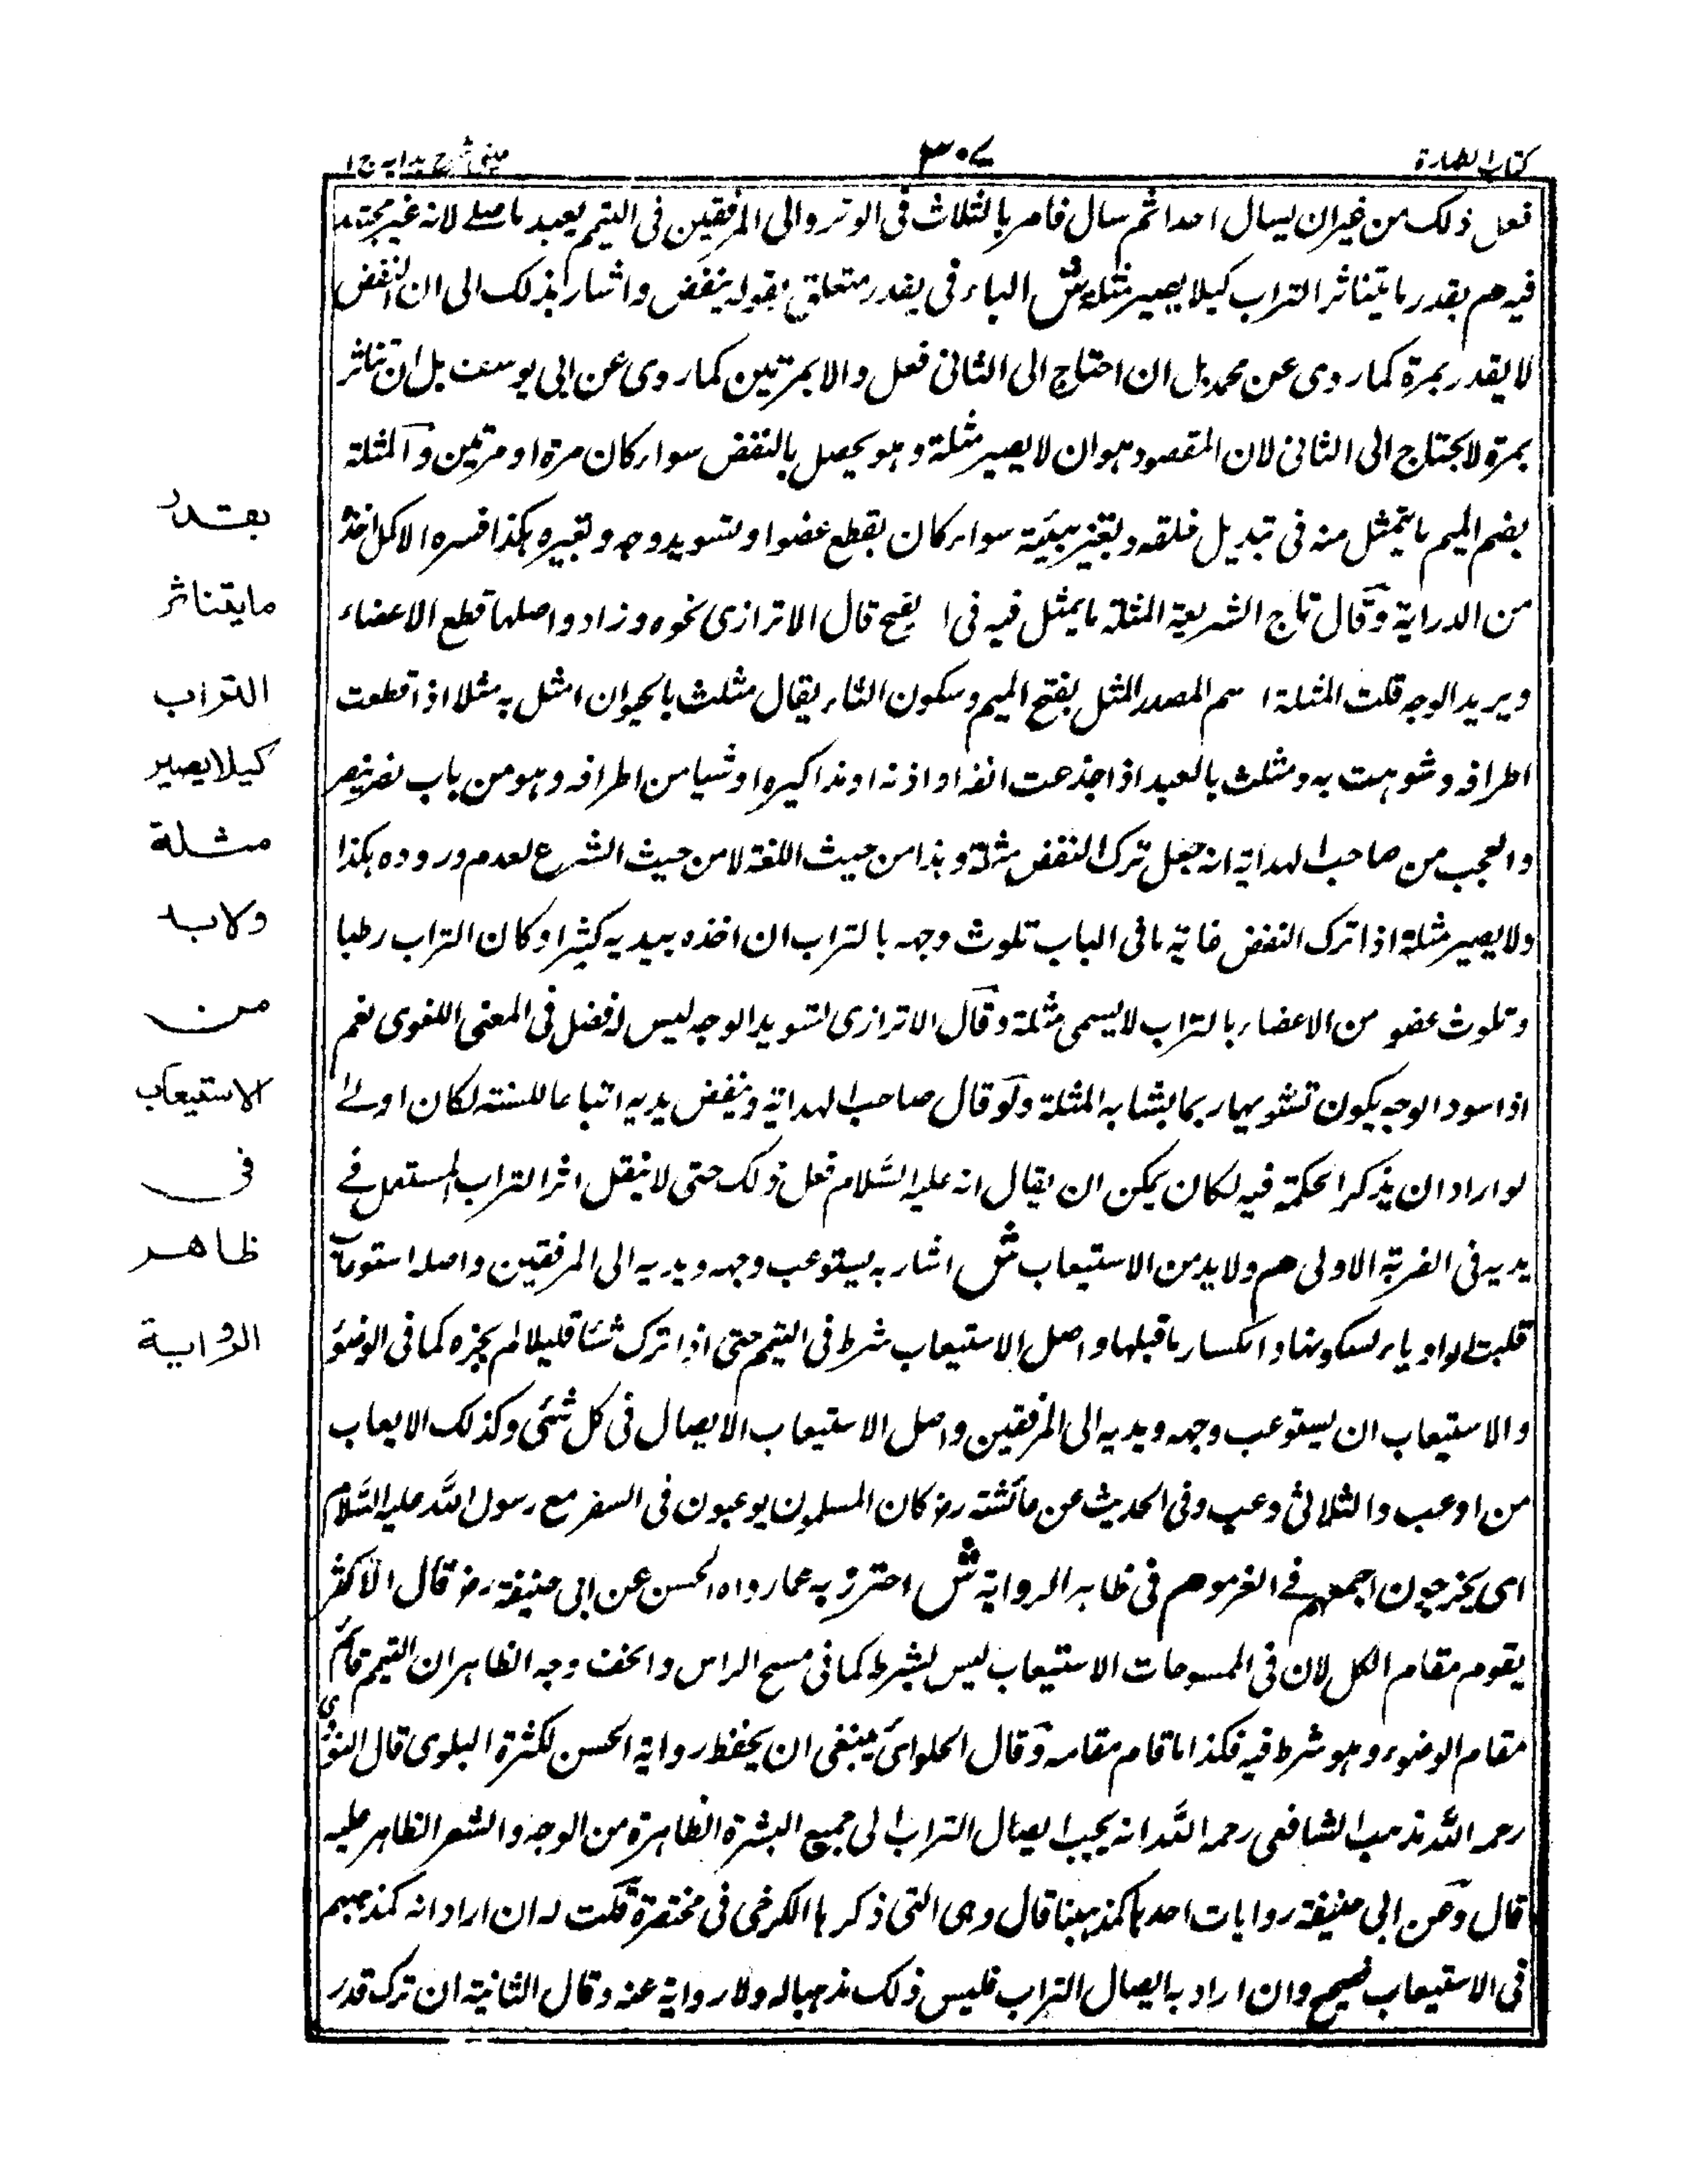 كتاب الطهارة
٣٠٧
عينى شرح هدايه ج ١
فعل ذلك من غيران يسال احدا ثم سال فامر بالثلاث فى الوتر والى المرفقين فى التيمم يعيد ما صلے لانه غير مجتهد
فيه م بقدر ما يتناثر التراب كيلا يصير مثلة ش الباء فى بقدر متعلق بقوله ينفض واشار بذلك الى ان النفض
لا يقدر بمرة كما روى عن محمد بل ان احتاج الى الثانى فعل والا بمرتين كما روى عن ابى يوسف بل ان تناثر
بمرة لا يحتاج الى الثانى لان المقصود هو ان لا يصير مثلة وهو يحصل بالنفض سواء كان مرة او مرتين والمثلة
بضم الميم ما يتمثل منه فى تبديل خلقه وتغير هيئة سواء كان بقطع عضو او تسويد وجه وتغيره هكذا فسره الاكمل اخذ
من الدراية وقال تاج الشريعة المثلة ما يمثل فيه فى ا يقبح قال الاترازى نحوه وزاد واصلها قطع الاعضاء
ويريد الوجه قلت المثلة اسم المصدر المثل بفتح الميم وسكون الثاء يقال مثلث بالحيوان امثل به مثلا اذا قطعت
اطرافه وشوهت به ومثلث بالعبد اذا جذعت انفه او اذنه او مذاكيره او شيا من اطرافه وهو من باب نصر ينصر
والعجب من صاحب الهداية انه جعل ترك النفض مثلة وهذا من حيث اللغة لا من حيث الشرع لعدم وروده هكذا
ولا يصير مثلة اذا ترك النفض غاية ما فى الباب تلوث وجهه بالتراب ان اخذه بيديه كثيرا وكان التراب رطبا
وتلوث عضو من الاعضاء بالتراب لا يسمى مثلة وقال الاترازى لتسويد الوجه ليس له فضل فى المعنى اللغوى نعم
اذا سود الوجه يكون تشويها ربما يشابه المثلة ولو قال صاحب الهداية وينفض يديه اتباعا للسنة لكان اولے
لو اراد ان يذكر الحكمة فيه لكان يمكن ان يقال انه عليه السلام فعل ذلك حتى لا ينقل اثر التراب المستعمل فے
يديه فى الضربة الاولى م ولا بد من الاستيعاب ش اشار به يستوعب وجهه ويديه الى المرفقين واصله استوعاب
قلبت الواو ياء لسكونها وانكسار ما قبلها واصل الاستيعاب شرط فى التيمم حتى اذا ترك شئا قليلا لم يجزه كما فى الوضوء
والاستيعاب ان يستوعب وجهه ويديه الى المرفقين واصل الاستيعاب الايصال فى كل شئى وكذلك الايعاب
من اوعب والثلاثى وعب وفى الحديث عن عائشة رض كان المسلمون يوعبون فى السفر مع رسول الله عليه السلام
اى يخرجون اجمعهم فے الغزو م فى ظاهر الرواية ش احترز به عما رواه الحسن عن ابى حنيفة رض قال الاكثر
يقوم مقام الكل لان فى الممسوحات الاستيعاب ليس بشرط كما فى مسح الراس والخف وجه الظاهر ان التيمم قائم
مقام الوضوء وهو شرط فيه فكذا ما قام مقامه وقال الحلوائى ينبغى ان يحفظ رواية الحسن لكثرة البلوى قال النووى
رحمه الله مذهب الشافعى رحمه الله انه يجب ايصال التراب الى جميع البشرة الظاهرة من الوجه والشعر الظاهر عليه
قال وعن ابى حنيفة روايات احدها كمذهبنا قال وهى التى ذكرها الكرخى فى مختصرة قلت له ان اراد انه كمذهبهم
فى الاستيعاب فصحيح وان اراد به ايصال التراب فليس ذلك مذهبا له ولا رواية عنه وقال الثانية ان ترك قدر
بقدر
مايتناثر
التراب
كيلايصير
مثلة
ولابد
من
الاستيعاب
فى
ظاهر
الرواية